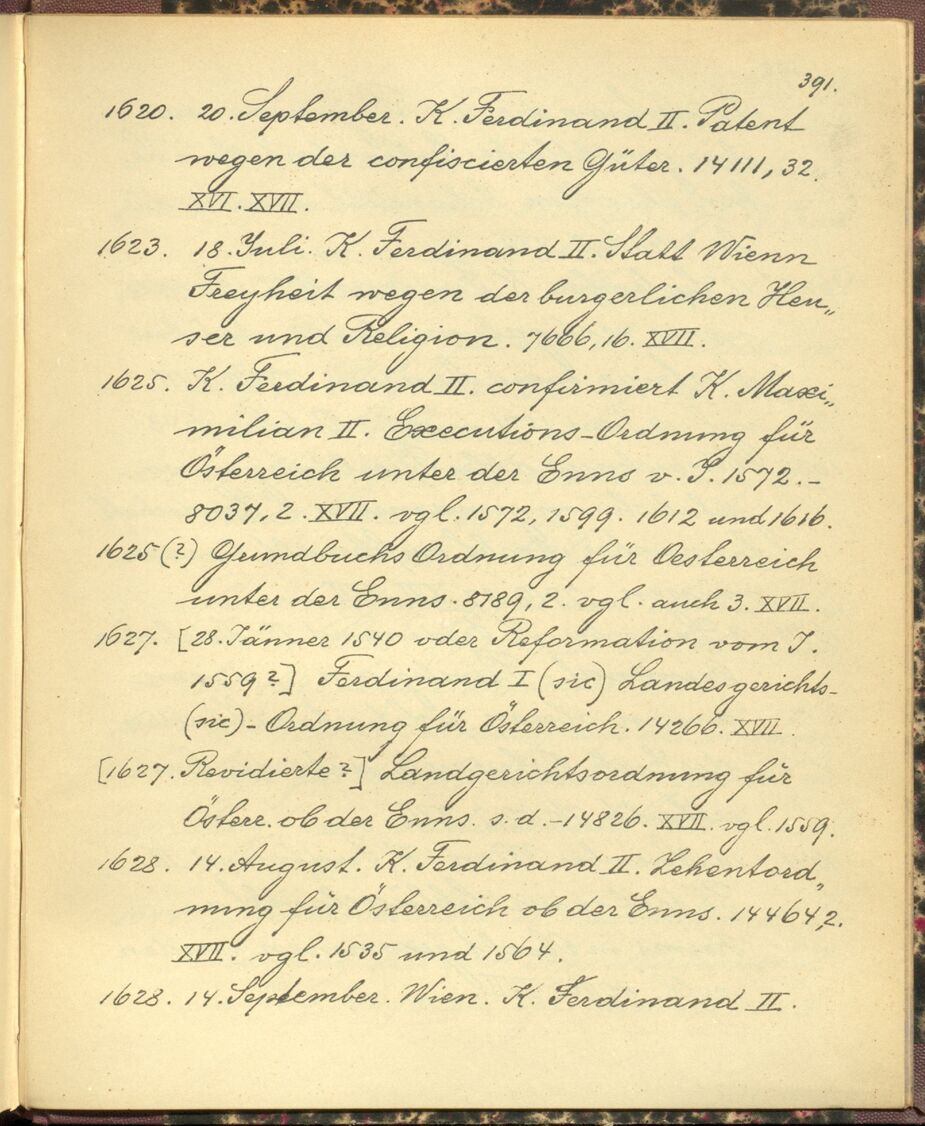 391.
1620. 20. September. K. Ferdinand II. Patent
wegen der confiscierten Güter. 14111, 32.
XVI. XVII.
1623. 18. Juli. K. Ferdinand II. Statt Wienn
Freyheit wegen der burgerlichen Heu„
ser und Religion. 7666, 16. XVII.
1625. K. Ferdinand II. confirmiert K. Maxi„
milian II. Executions-Ordnung für
Österreich unter der Enns v. J. 1572. –
8037, 2. XVII. vgl. 1572, 1599. 1612 und 1616.
1625 (?) Grundbuchs Ordnung für Oesterreich
unter der Enns. 8189, 2. vgl. auch 3. XVII.
1627. [28. Jänner 1540 oder Reformation vom J.
1559?] Ferdinand I (sic) Landesgerichts-
(sic) - Ordnung für Österreich. 14266. XVII.
[1627. Revidierte?] Landgerichtsordnung für
Österr. ob der Enns. s. d. – 14826. XVII. vgl. 1559.
1628. 14. August. K. Ferdinand II. Zehentord„
nung für Österreich ob der Enns. 14464, 2.
XVII. vgl. 1535 und 1564.
1628. 14. September. Wien. K. Ferdinand II.